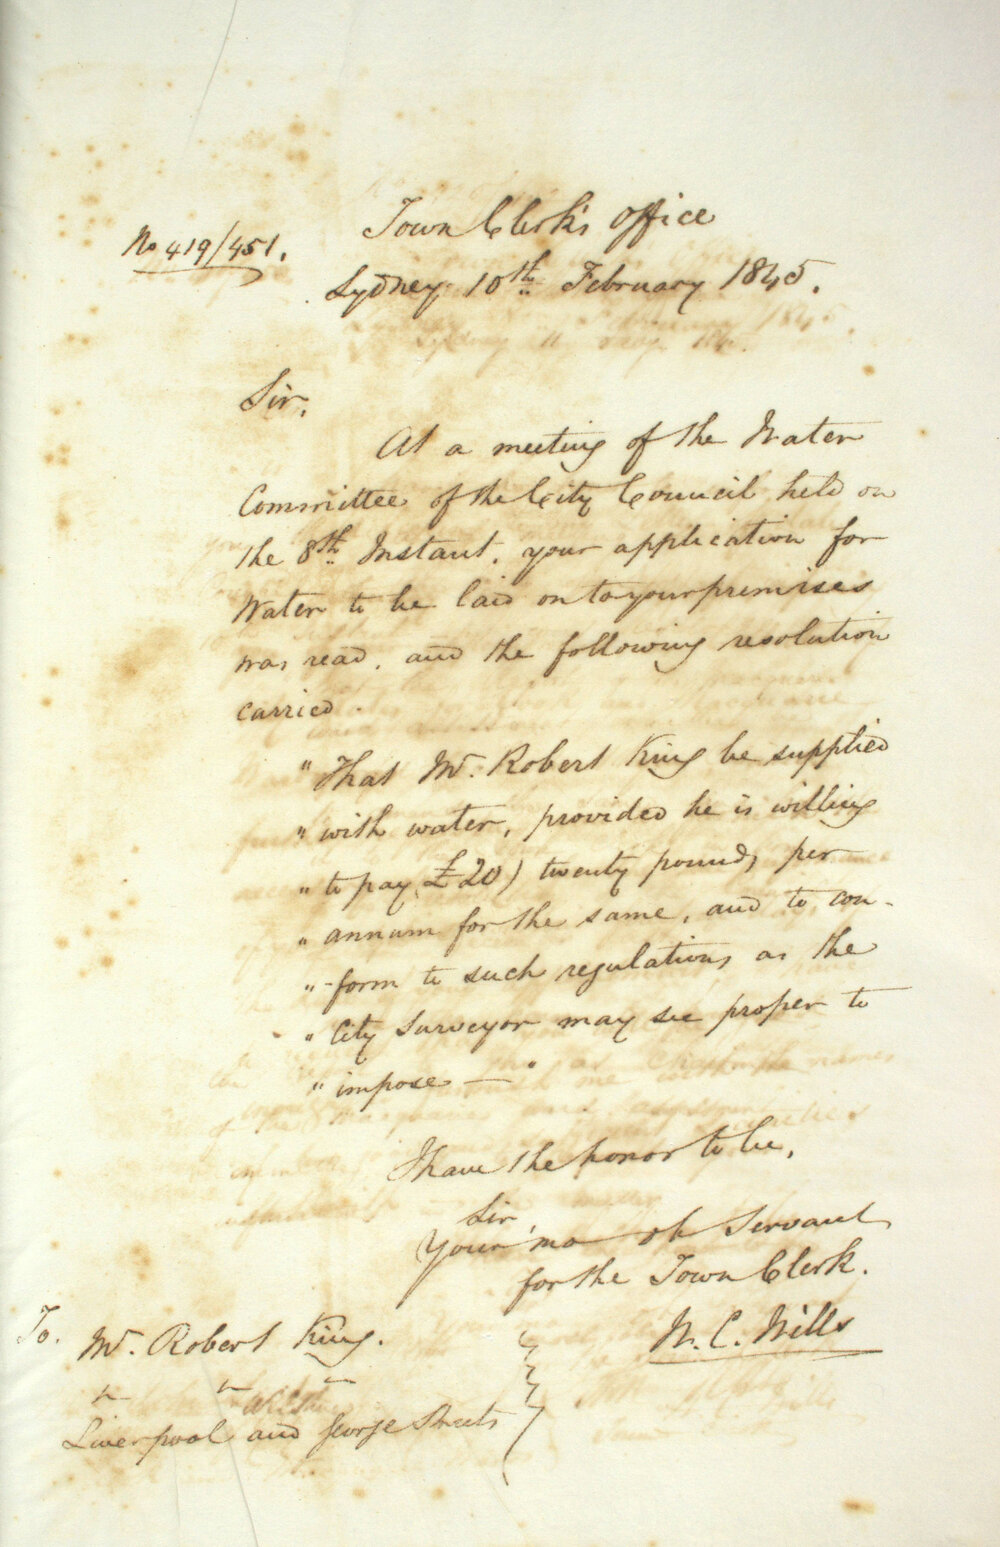 No 419/451.
Town Clerk's Office
Sydney 10th February 1845.
Sir,
At a meeting of the Water
Committee of the City Council held on
the 8th Instant, your application for
Water to be laid on to your premises
was read, and the following resolution
carried.
"That Mr. Robert King be supplied
" with water, provided he is willing
" to pay (£20) twenty pounds per
" annum for the same, and to con-
" -form to such regulations as the
" City Surveyor may see proper to
" impose — "
I have the honor to be,
Sir,
Your mo ob Servant
for the Town Clerk.
W. C. Wills
To. Mr. Robert King.
Liverpool and George Streets